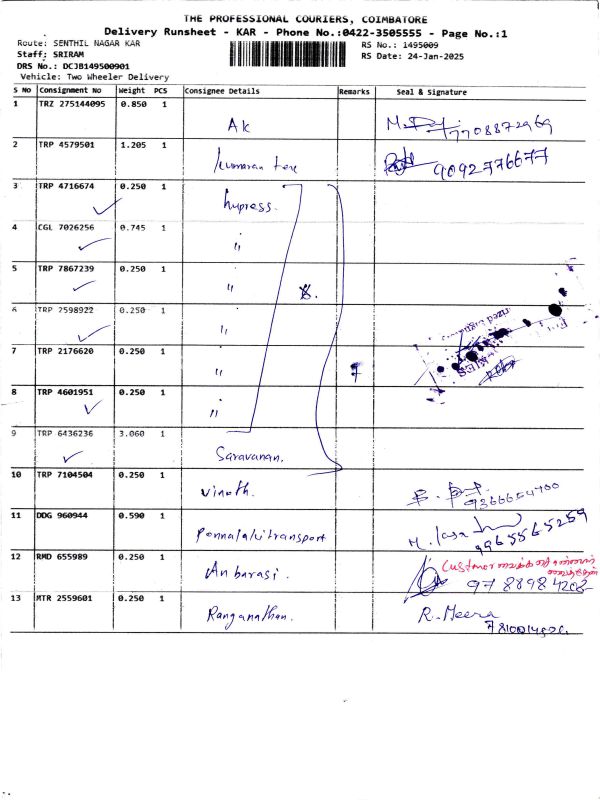 THE PROFESSIONAL COURIERS, COIMBATORE
Delivery Runsheet - KAR - Phone No.:0422-3505555 - Page No.:1
Route: SENTHIL NAGAR KAR RS No.: 1495009
Staff: SRIRAM RS Date: 24-Jan-2025
DRS No.: DCJB149500901
Vehicle: Two Wheeler Delivery
S No Consignment No Weight PCS Consignee Details Remarks Seal & Signature
1 TRZ 275144095 0.850 1 Ak 7708872969
2 TRP 4579501 1.205 1 9092776677
3 TRP 4716674 0.250 1 hupress.
4 CGL 7026256 0.745 1 "
5 TRP 7867239 0.250 1 "
6 TRP 2598922 0.250 1 "
7 TRP 2176620 0.250 1 " 7
8 TRP 4601951 0.250 1 "
9 TRP 6436236 3.060 1 Saravanan.
10 TRP 7104504 0.250 1 vinoth. 9366654700
11 DDG 960944 0.590 1 9965565259
12 RMD 655989 0.250 1 Anbarasi. Customer
9788984208
13 MTR 2559601 0.250 1 Ranganathan. R. Meera